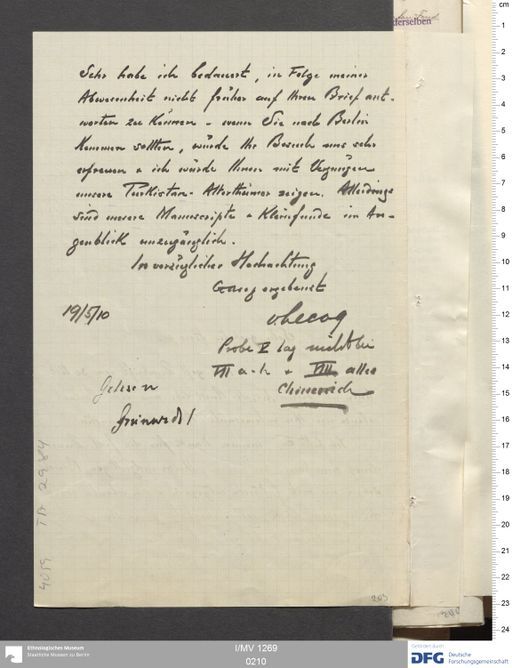 derselben
Sehr habe ich bedauert, in Folge meiner
Abwesenheit nicht früher auf Ihren Brief ant-
worten zu können - wenn Sie nach Berlin
kommen sollten, würde Ihr Besuch uns sehr
erfreuen & ich würde Ihnen mit Vergnügen
unsere Turkistan-Alterthümer zeigen. Allerdings
sind unsere Manuscripte & Kleinfunde im Au-
genblick unzugänglich.
In vorzüglicher Hochachtung
Ganz ergebenst
v. Lecoq
19/5/10
Probe V lag nicht bei
VII a-h & VIII alles
Chinesisch
Gelesen
Grünwedel
4059 TA 2984
203
200
cm
1
2
3
4
5
6
7
8
9
10
11
12
13
14
15
16
17
18
19
20
21
22
23
24
Ethnologisches Museum
Staatliche Museen zu Berlin
I/MV 1269
0210
Gefördert durch
DFG Deutsche
Forschungsgemeinschaft